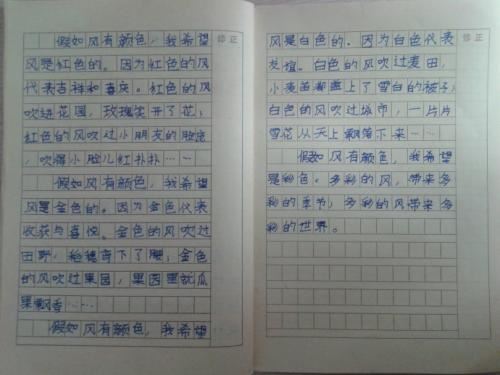 修正
假如风有颜色，我希望
风是红色的。因为红色的风
代表吉祥和喜庆。红色的风
吹进花园，玫瑰笑开了花；
红色的风吹过小朋友的脸庞
，吹得小脸儿红扑扑……
假如风有颜色，我希望
风是金色的。因为金色代表
收获与喜悦。金色的风吹过
田野，稻穗弯下了腰；金色
的风吹过果园，果园里就瓜
果飘香……
假如风有颜色，我希望
修正
风是白色的。因为白色代表
友谊。白色的风吹过麦田，
小麦苗都盖上了雪白的被子；
白色的风吹过城市，一片片
雪花从天上飘落下来……
假如风有颜色，我希望
是彩色。多彩的风，带来多
彩的季节；多彩的风带来多
彩的世界。